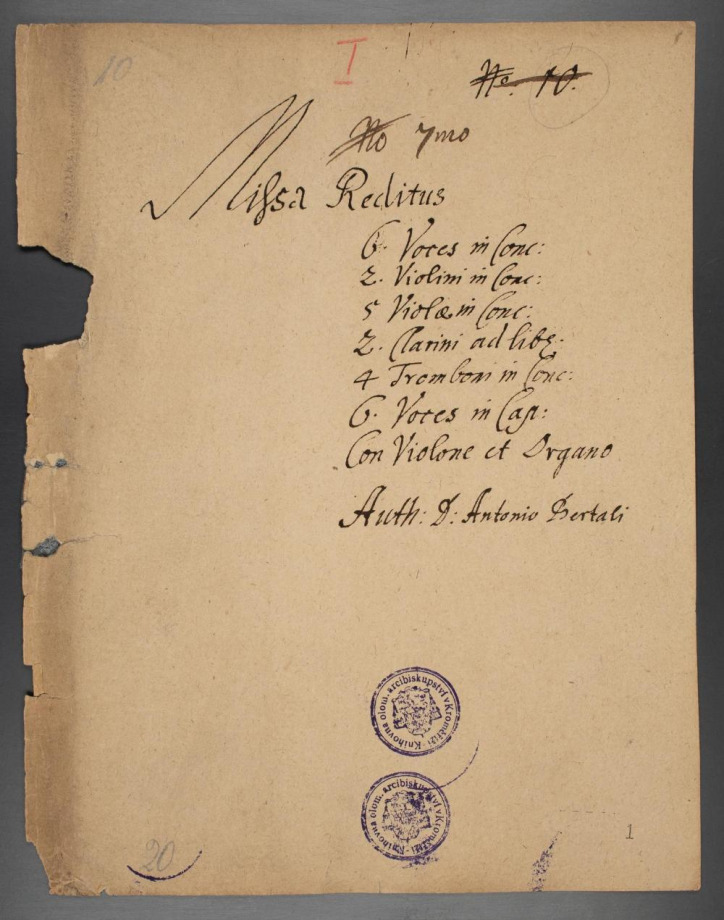 10
I
No. 10.
No 7mo
Missa Reditus
6. Voces in Conc:
2. Violini in Conc:
5 Violæ in Conc:
2. Clarini ad lib:
4 Tromboni in Conc:
6. Voces in Cap:
Con Violone et Organo
Auth: D: Antonio Bertali
Knihovna olom. arcibiskupství v Kroměříži
Knihovna olom. arcibiskupství v Kroměříži
1
20